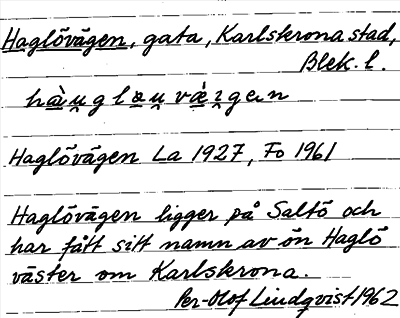 Haglövägen, gata, Karlskrona stad,
Blek. l.
Haglövägen La 1927, Fo 1961
Haglövägen ligger på Saltö och
har fått sitt namn av ön Haglö
väster om Karlskrona.
Per-Olof Lindqvist 1962